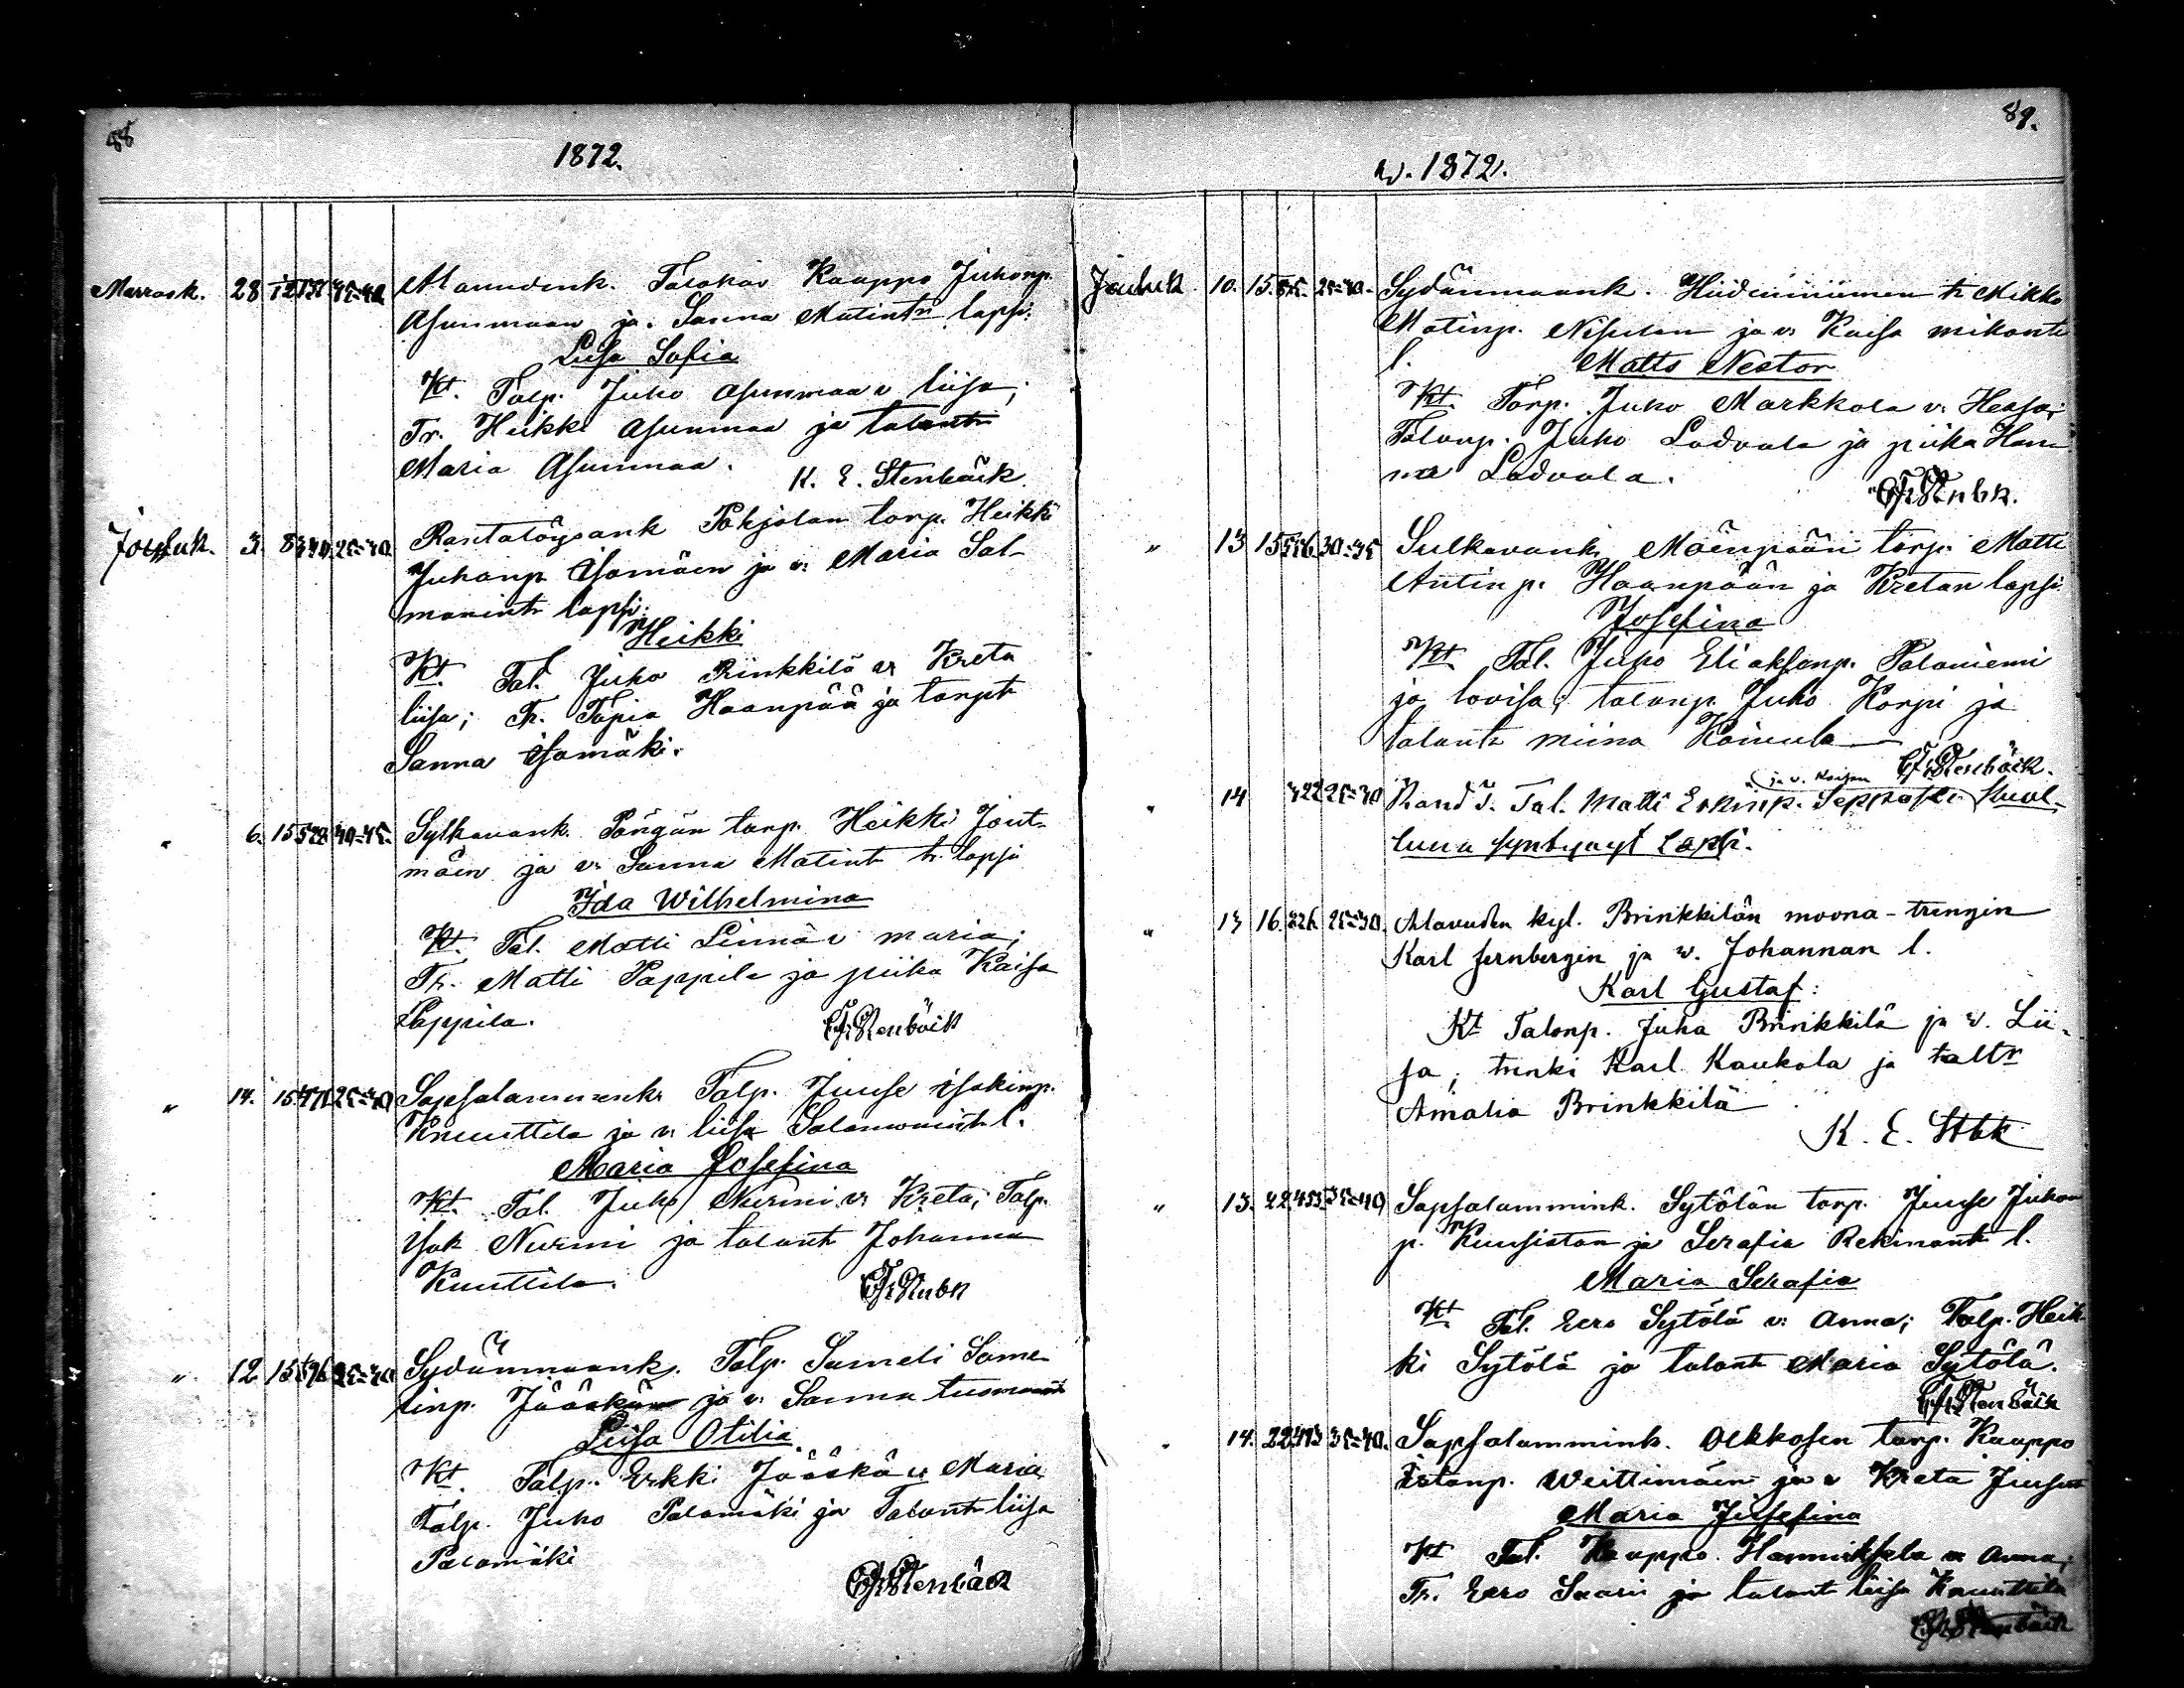 88
1872.
Marrask. 28 12 Alavudenk. Talokas Kaappo Juhonp.
Asunmaan ja. Sanna Matintr lapsi:
Liisa Sofia
Kt. Talp. Juho Asunmaa v liisa;
Tr. Heikki Asunmaa ja talontr
Maria Asunmaa.
K. E. Stenbäck.
Jouluk. 3. 8 25=30 Rantatöysänk Pohjolan torp. Heikki
Juhonp Isomäen ja v: Maria Sal-
monintr lapsi:
Heikki
Kt. Tal. Juho Rinkkilä v: Kreta
liisa; Tr. Tapia Haanpää ja torptr
Sanna Isomäki.
" 6. 15 528 40=45. Sylkavank. torp. Heikki Jout-
mäen ja v: Sanna Matintr tr. lapsi
Ida Wilhelmina
Kt. Tal. Matti Linna v: maria;
Tr. Matti Pappila ja piika Kaisa
Pappila.
Stenbäck
" 14. 15 471 25=30 Sapsalammink. Talp. Juuse isakinp.
Knuuttila ja v: liisa Salomonintr l.
Maria Josefina
Kt. Tal. Juho Nurmi v: Kreta; Talp.
Isak Nurmi ja talontr Johanna
Kuuttila.
Stenbk
" 12 15 596 25=30 Sydänmaank. Talp. Sameli Same-
linp. Jääskän ja v: Sanna
Liisa Otilia
Kt. Talp. Erkki Jääskä v: Maria
talp. Juho Palomäki ja Talontr liisa
Palomäki
Stenbäck
89.
w. 1872.
Jouluk. 10. 15. 25=30. Sydänmaank. Hiidenniemen tr Mikko
Matinp. Nisulan ja v: Kaisa mikontr
l. Matts Nestor
Kt. Torp. Juho Markkola v: Hessa;
Talonp. Juho Ladvala ja piika Han-
na Ladvala.
Stenbk.
" 13 15 556 30=35 Sulkavank. Mäenpään torp. Matti
Antinp. Haanpään ja Kretan lapsi
Josefina
Kt. Tal. Juho Eliaksenp. Palaniemi
ja lovisa; talonp. Juho Korpi ja
talontr miina Koivula
Stenbäck.
" 14 322 25=30 Rand T. Tal. Matti Erkinp. Seppäsen (ja v. Kaisan) kuol-
luna syntynyt Lapsi.
" 13 16. 226. 25=30. Alavuden kyl. Brinkkilän moona-trengin
Karl fernbergin ja w. Johannan l.
Karl Gustaf:
Kt Talonp. Juha Brinkkilä ja w. Lii-
sa; trenki Karl Kaukola ja taltr
Amalia Brinkkilä
K. E. Stbk
" 13. 22 455 35=40 Sapsalammink. Sytölän torp. Juuse Juhon
p. Kuusiston ja Serafia Rekinontr l.
Maria Serafia
Kt. Tal. Eero Sytölä v: Anna; Talp. Heik-
ki Sytölä ja talontr Maria Sytölä.
Stenbäck
" 14. 22 493 35=40. Sapsalammink. Olkkosen torp. Kaappo
Weittimäen ja v Kreta
Maria Josefina
Kt Tal. Kaappo Hanniksela v: Anna;
Tr. Eero Saari ja talontr liisa Knuuttila
Stenbäck